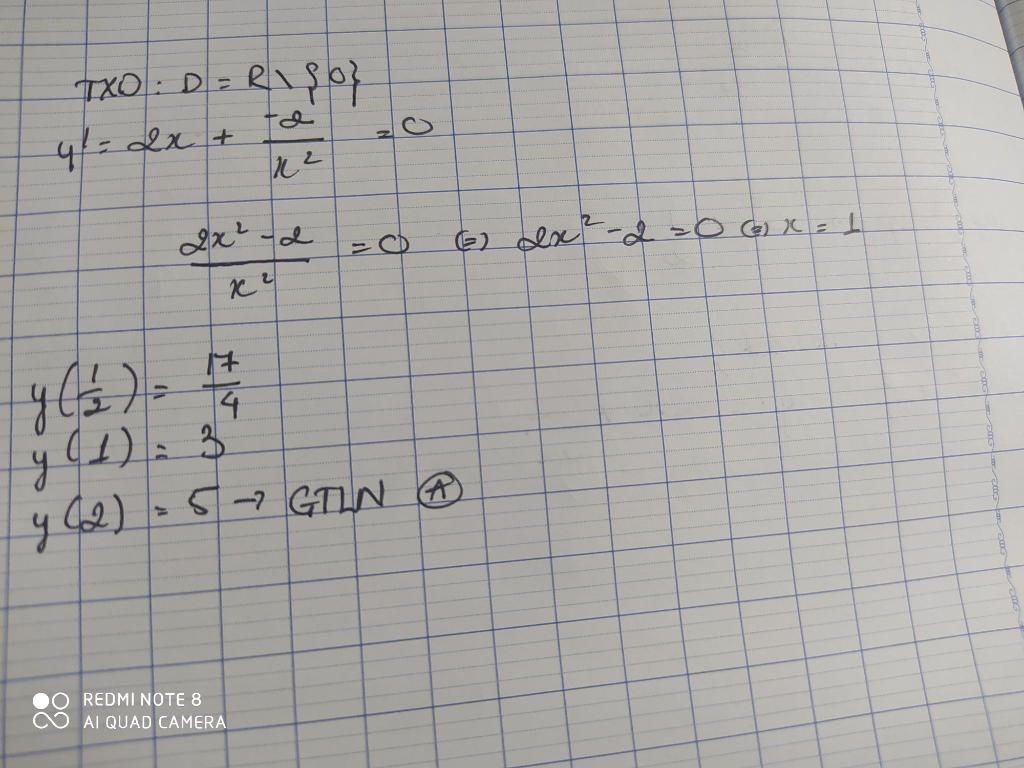 TXĐ : D = R \ {0}
y' = 2x + -2/x² = 0
2x² - 2/x² = 0 (=) 2x² - 2 = 0 (=) x = 1
y(1/2) = 17/4
y(1) = 3
y(2) = 5 → GTLN Ⓐ
REDMI NOTE 8
AI QUAD CAMERA